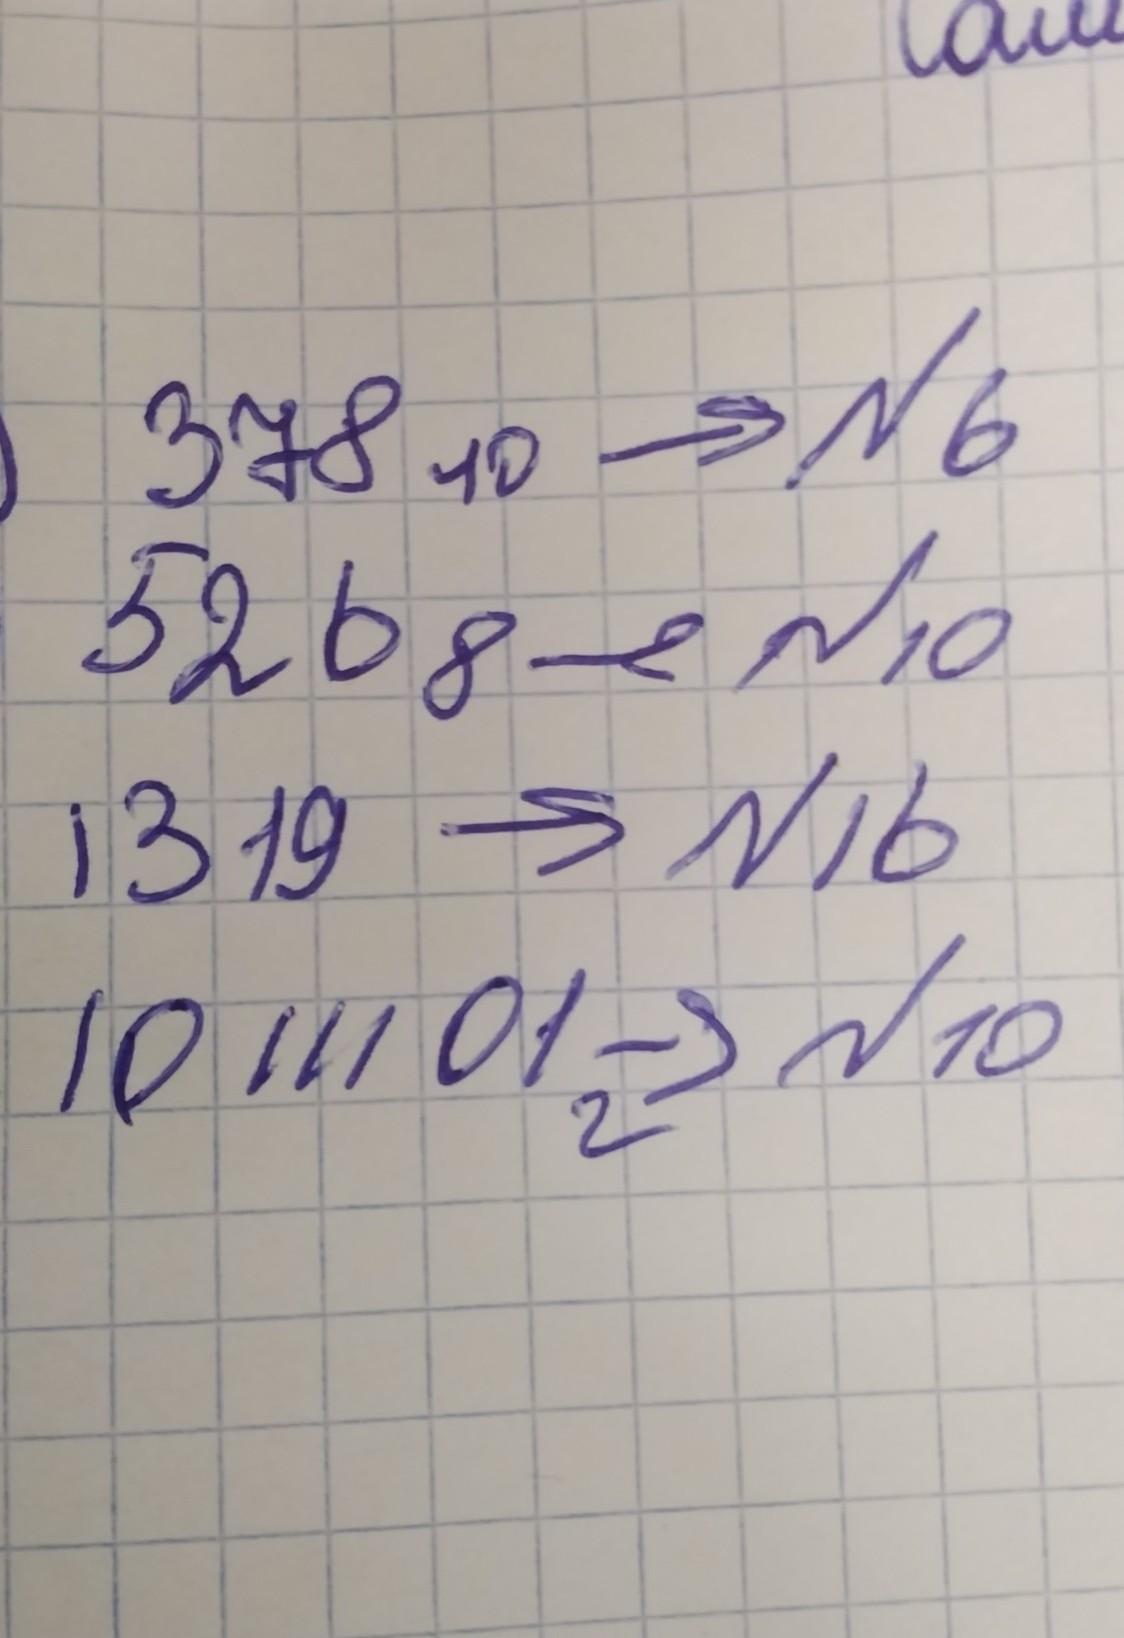 378₁₀ → N6
526₈ → N10
1319 → N16
1011101₂ → N10